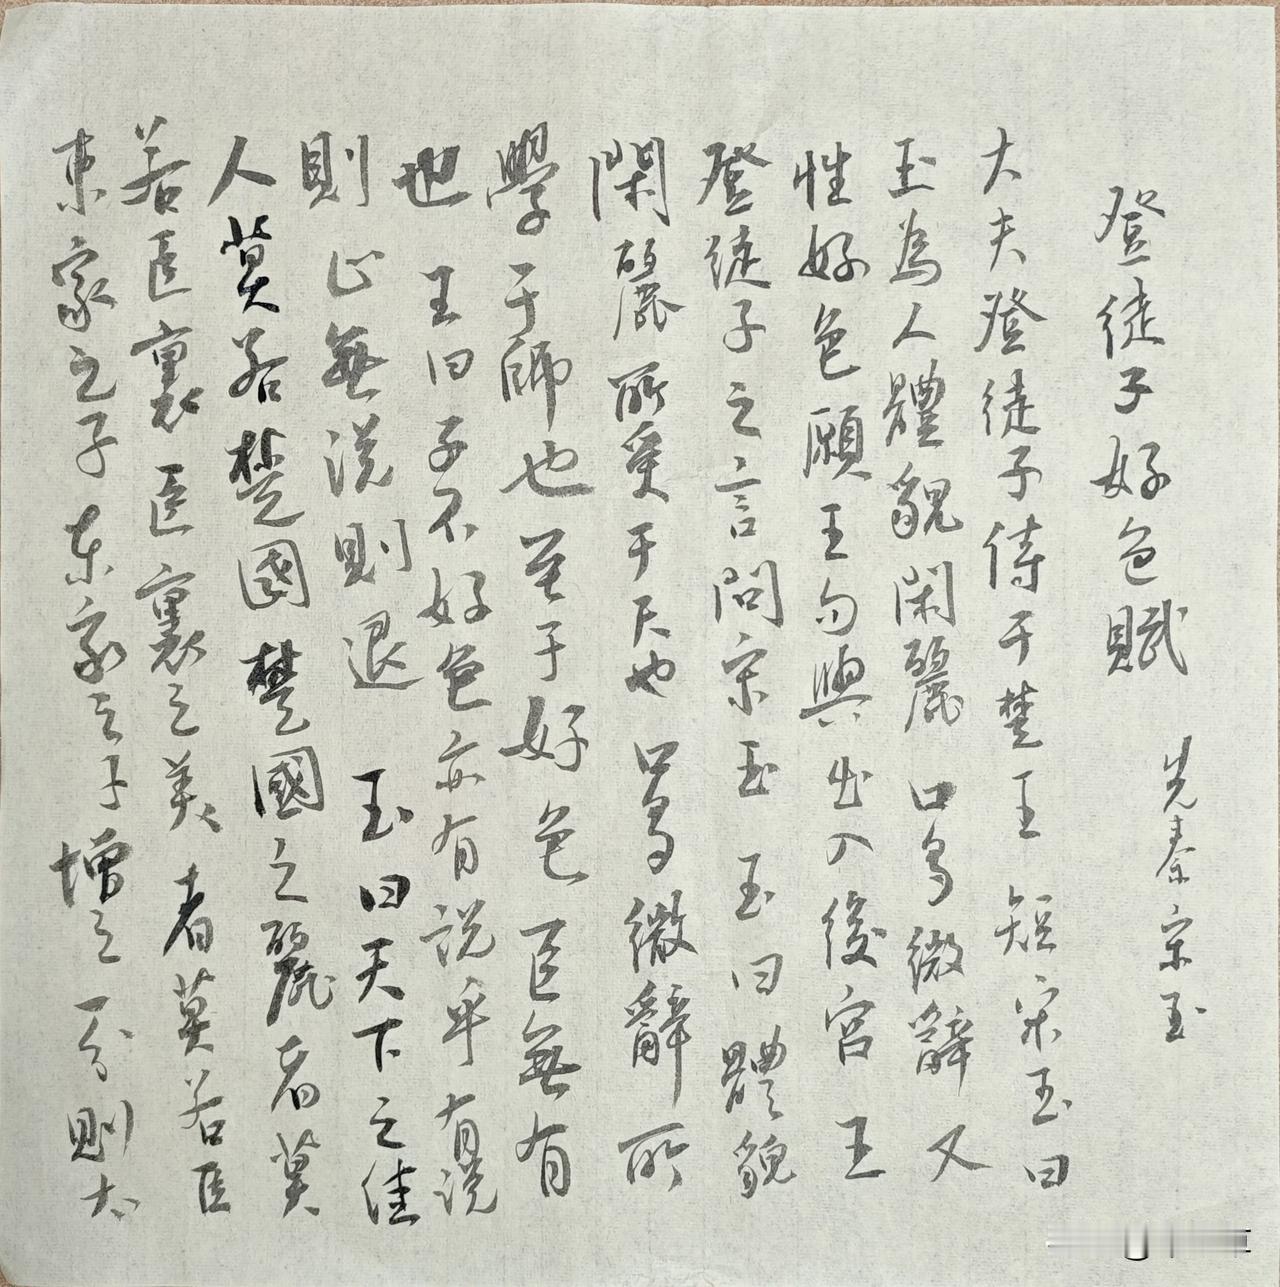 登徒子好色賦 先秦宋玉
大夫登徒子侍于楚王短宋玉曰
玉為人體貌閑麗口多微辭又
性好色願王勿與出入後宮王
登徒子之言問宋玉玉曰體貌
閑麗所受于天也口多微辭所
學于師也至于好色臣無有
也王曰子不好色亦有說乎有說
則止無説則退玉曰天下之佳
人莫若楚國楚國之麗者莫
若臣裏臣裏之美者莫若臣
東家之子東家之子增之一分則太